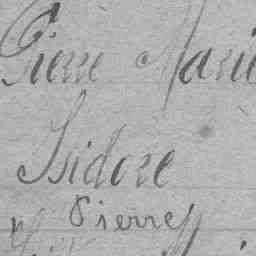 Pierre Marie
Isidore
Pierre